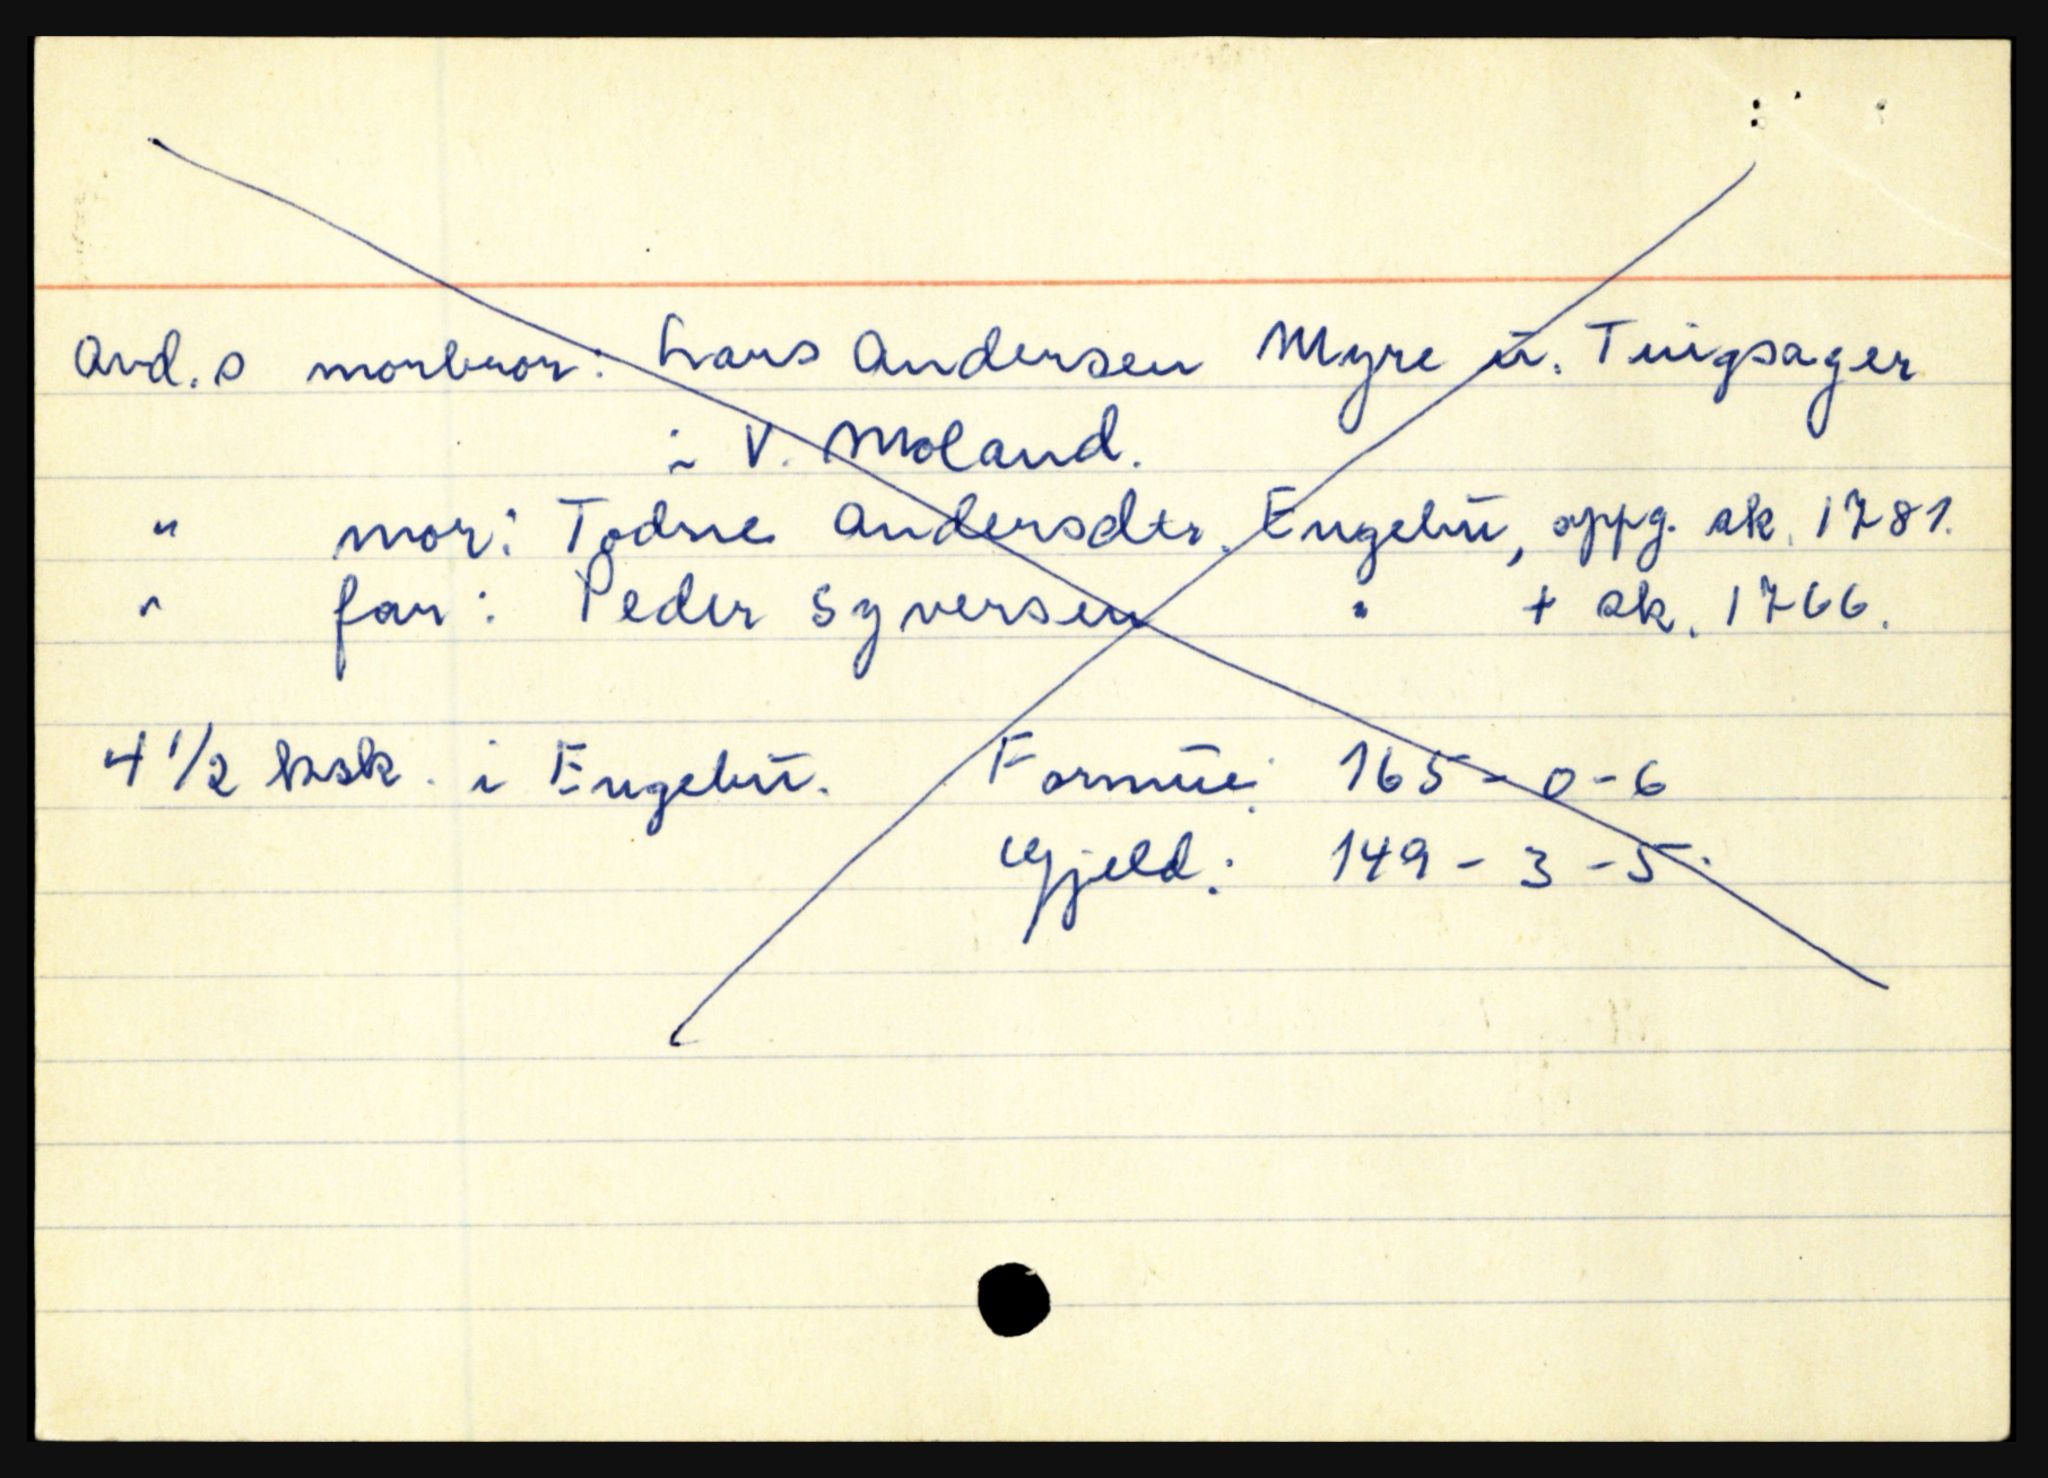 Avd. s morbror: Lars Andersen Myre u. Tingsager
i V. Moland.
" mor: Todne Andersdtr. Engebu, oppg. sk. 1781.
" far: Peder Syversen " + sk. 1766.
4 1/2 ksk. i Engebu. Formue: 165 - 0 - 6
Gjeld: 149 - 3 - 5